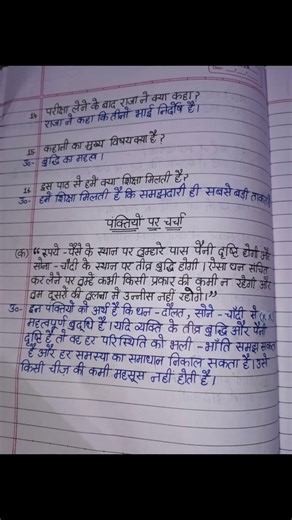 14 परीक्षा लेने के बाद राजा ने क्या कहा?
राजा ने कहा कि तीनों भाई निर्दोष है।
15 कहानी का मुख्य विषय क्या है?
उ०- बुद्धि का महत्व।
16 इस पाठ से हमें क्या शिक्षा मिलती है?
उ०- हमें शिक्षा मिलती है कि समझदारी ही सबसे बड़ी
पंक्तियों पर चर्चा
(क) “रुपये-पैसे के स्थान पर तुम्हारे पास पैनी दृष्टि होगी और
सोना-चाँदी के स्थान पर तीव्र बुद्धि होगी। ऐसा धन संचित
कर लेने पर तुम्हें कभी किसी प्रकार की कमी न रहेगी और
तुम दूसरों की तुलना में उन्नीस नहीं रहोगे।”
उ०- इन पंक्तियों का अर्थ है कि धन-दौलत, सोने-चाँदी से
महत्वपूर्ण बुद्धि है। यदि व्यक्ति के तीव्र बुद्धि और पैनी
दृष्टि है तो वह हर परिस्थिति को भली-भाँति समझ सकता
है और हर समस्या का समाधान निकाल सकता है। उसे
किसी चीज की कमी महसूस नहीं होती है।